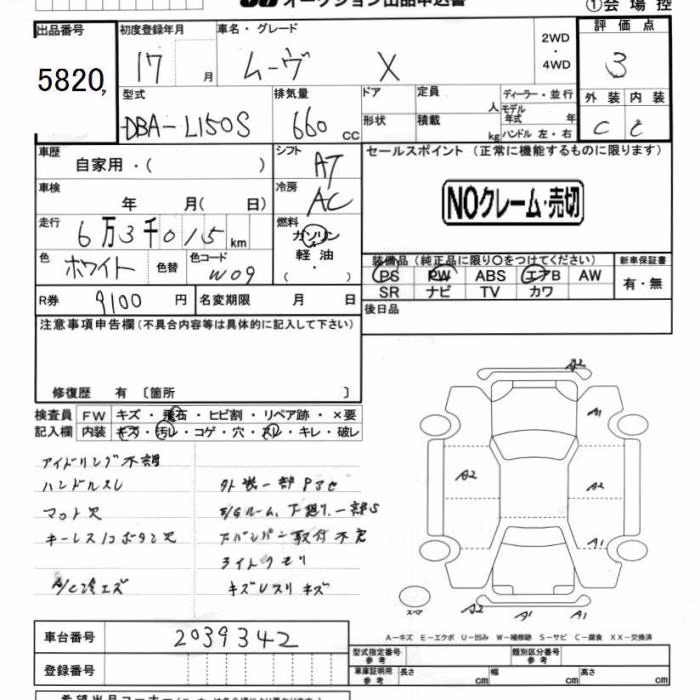 オークション出品申込書
①会場控
出品番号
5820
初度登録年月
17 月
車名・グレード
ムーヴ X
2WD
・
4WD
評価点
3
外装 内装
C C
型式
DBA-L150S
排気量
660 cc
ドア
形状
定員 人
積載 kg
ディーラー・並行
モデル年式 年
ハンドル 左・右
車歴
自家用・( )
シフト
AT
セールスポイント (正常に機能するものに限ります)
NOクレーム・売切
車検 年 月( 日)
冷房
AC
走行
6万3千015 km
燃料
ガソリン
軽油
( ・ )
色
ホワイト
色替
色コード
W09
装備品 (純正品に限り○をつけてください)
新車保証書
PS PW ABS エアB AW
SR ナビ TV カワ
有・無
R券 9100 円
名変期限 月 日
後日品
注意事項申告欄 (不具合内容等は具体的に記入して下さい)
修復歴 有 〔箇所 〕
検査員
記入欄
FW キズ・飛石・ヒビ割・リペア跡・×要
内装 キズ・汚レ・コゲ・穴・スレ・キレ・破レ
アイドリング不調
ハンドルスレ
外装一部Pアセ
マット欠
E/Gルーム、下廻り、一部S
キーレス1コボタン欠
Fバンパー取付不良
ライトクモリ
A/C冷エズ
キズUスリキズ
A2
A1
A2
A2
A1
スペア
A2
A1
A1
A-キズ E-エクボ U-凹み W-補修跡 S-サビ C-腐食 XX-交換済
車台番号
2039342
登録番号
型式指定番号
参考
類別区分番号
参考
車庫証明用
参考
長さ cm
幅 cm
高さ cm